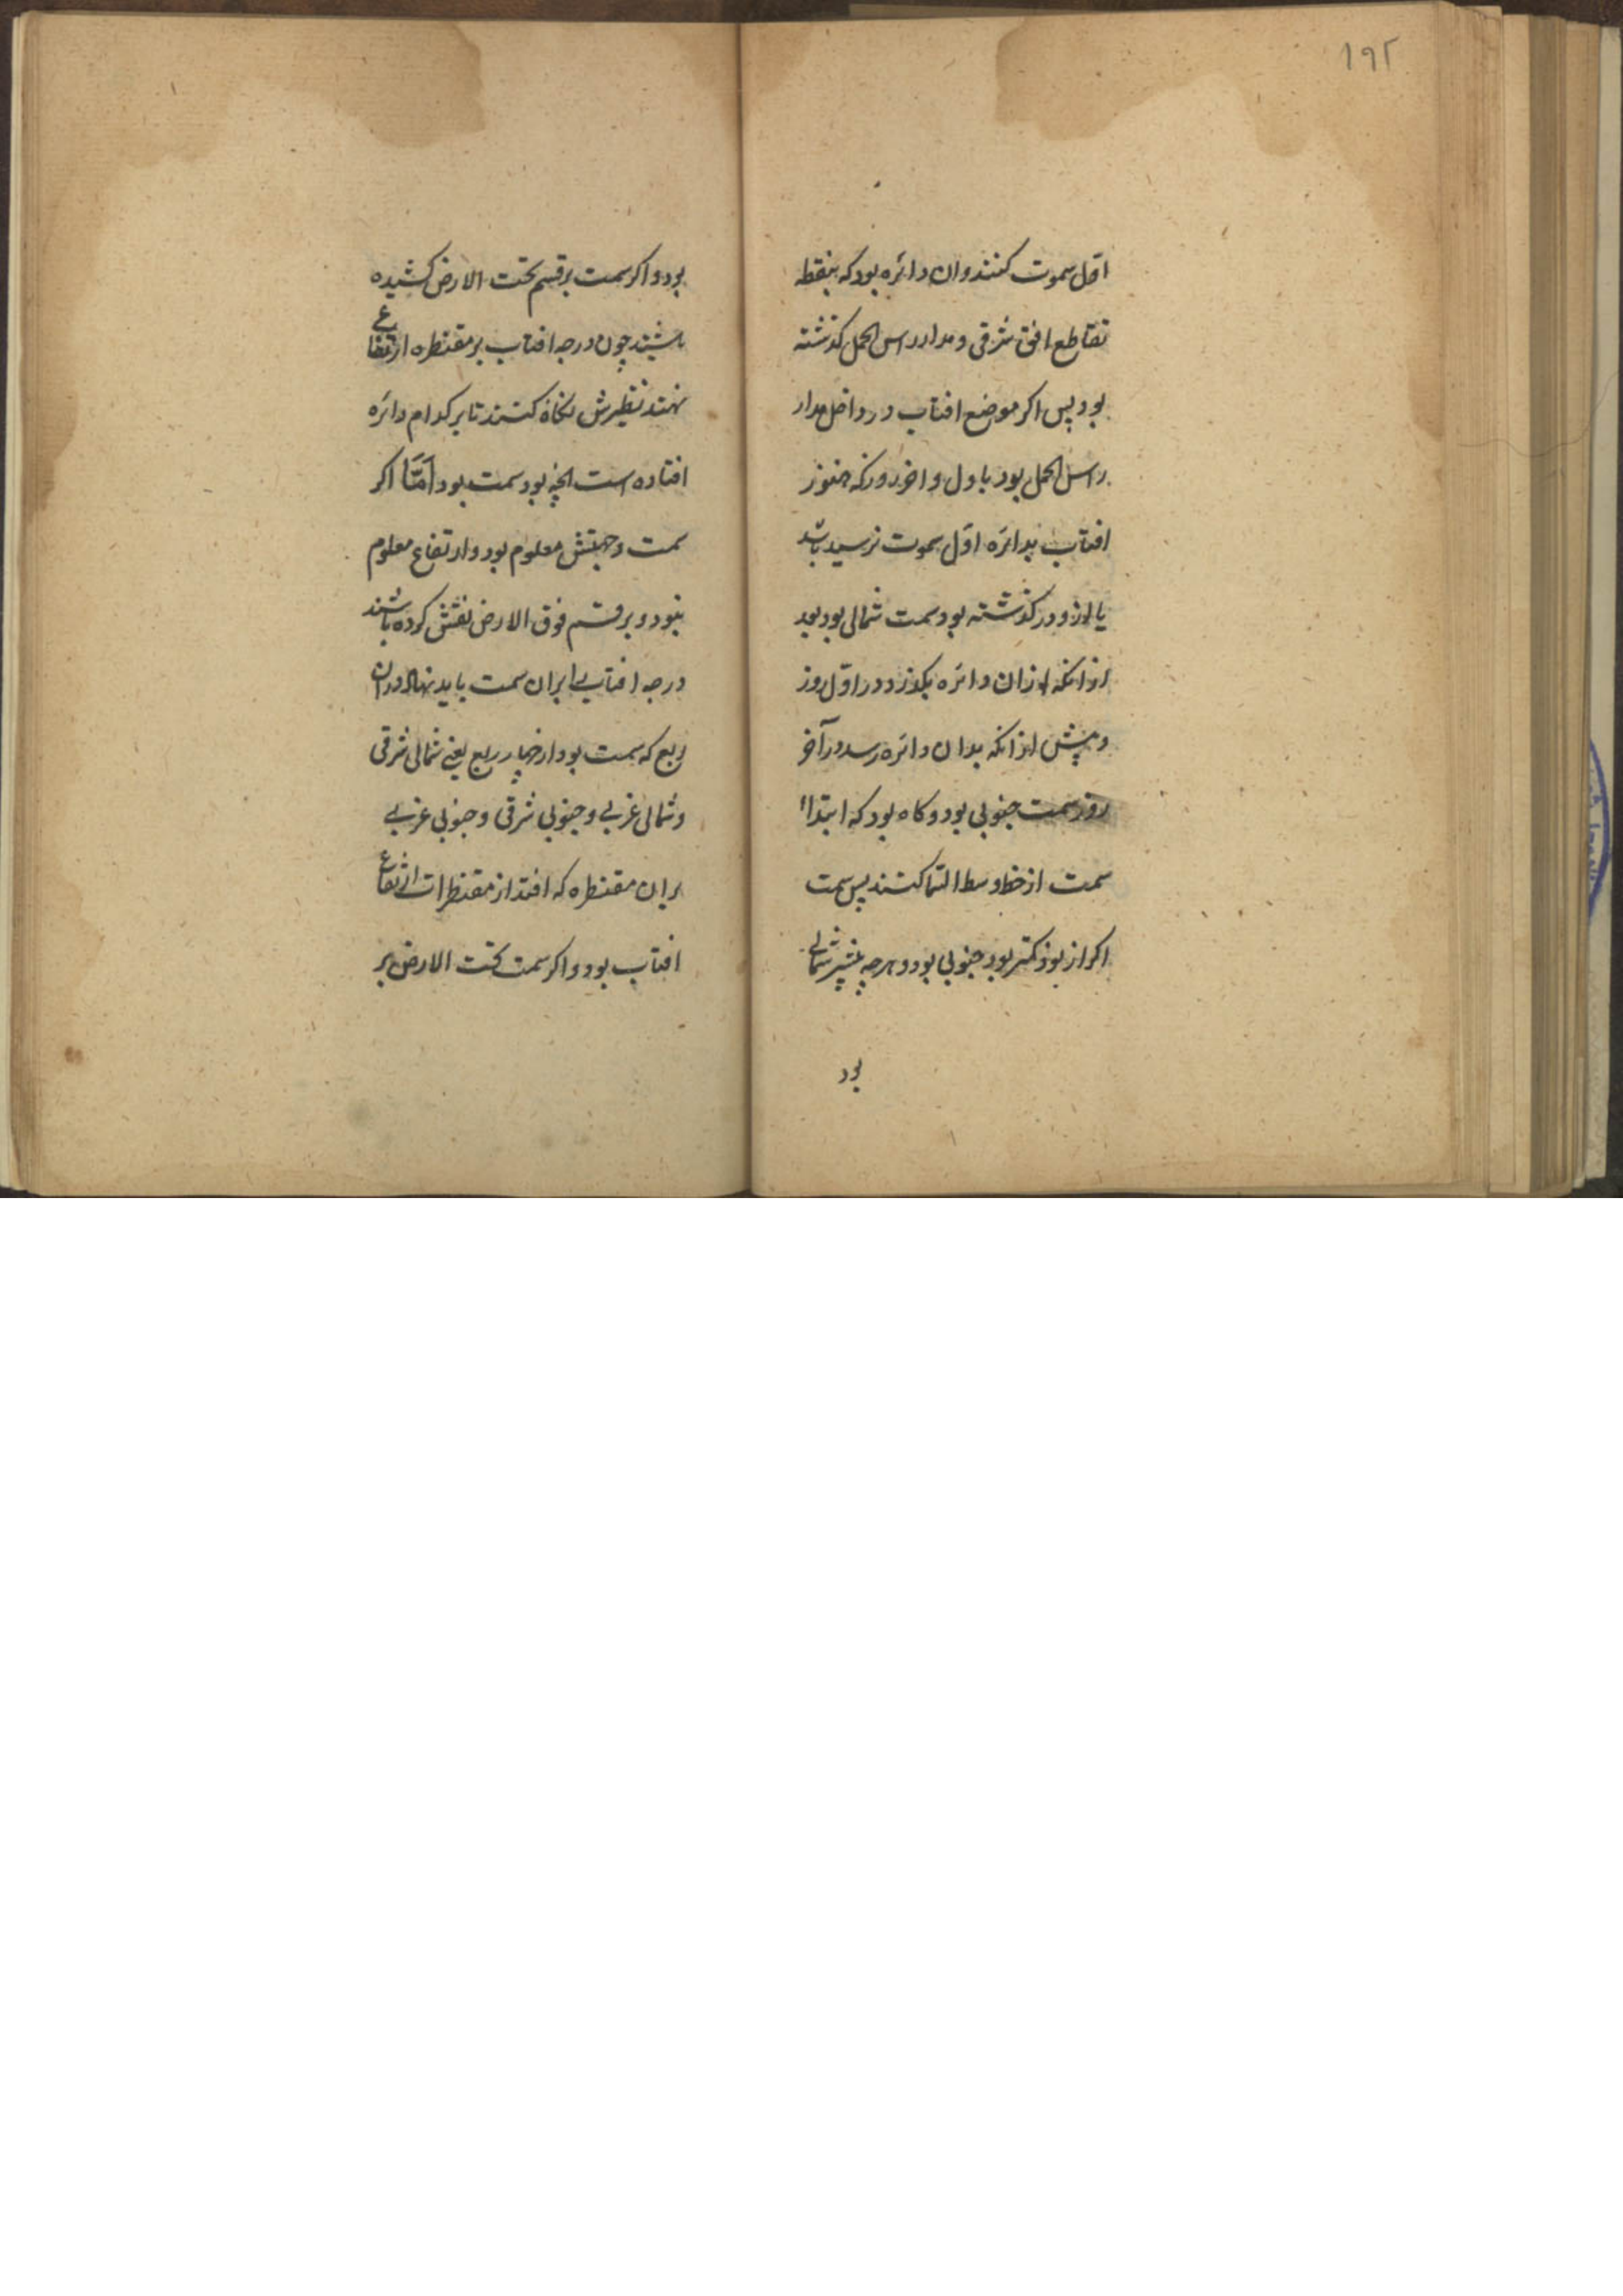 ۱۹۲
اول سموت کنند وان دائره بود که بنقطه
تقاطع افق شرقی و مدار راس الحمل کذشته
بود پس اکر موضع افتاب در داخل مدار
راس الحمل بود باول و اخر روز که هنوز
افتاب بدائره اول سموت نرسید باشد
یا ازو در کذشته بود سمت شمالی بود بعد
از انکه از ان دائره بکذرد در اول روز
و پیش از انکه بدان دائره رسد در آخر
روز سمت جنوبی بود و کاه بود که ابتداء
سمت از خط وسط السما کنند پس سمت
اکر از نود کمتر بود جنوبی بود و هرچه بیشتر شمالی
بود
بود و اکر سمت بر قسم تحت الارض کشیده
باشند چون درجه افتاب بر مقنطره ارتفاع
نهند نظیرش نکاه کنند تا بر کدام دائره
افتاده است انچه بود سمت بود اَمَّا اکر
سمت و جهتش معلوم بود و ارتفاع معلوم
نبود و بر قسم فوق الارض نقش کرده باشند
درجه افتاب بر ان سمت باید نهاد در ان
ربع که سمت بود از چهار ربع یعنی شمالی شرقی
و شمالی غربی و جنوبی شرقی و جنوبی غربی
بران مقنطره که افتد از مقنطرات ارتفاع
افتاب بود و اکر سمت تحت الارض بر